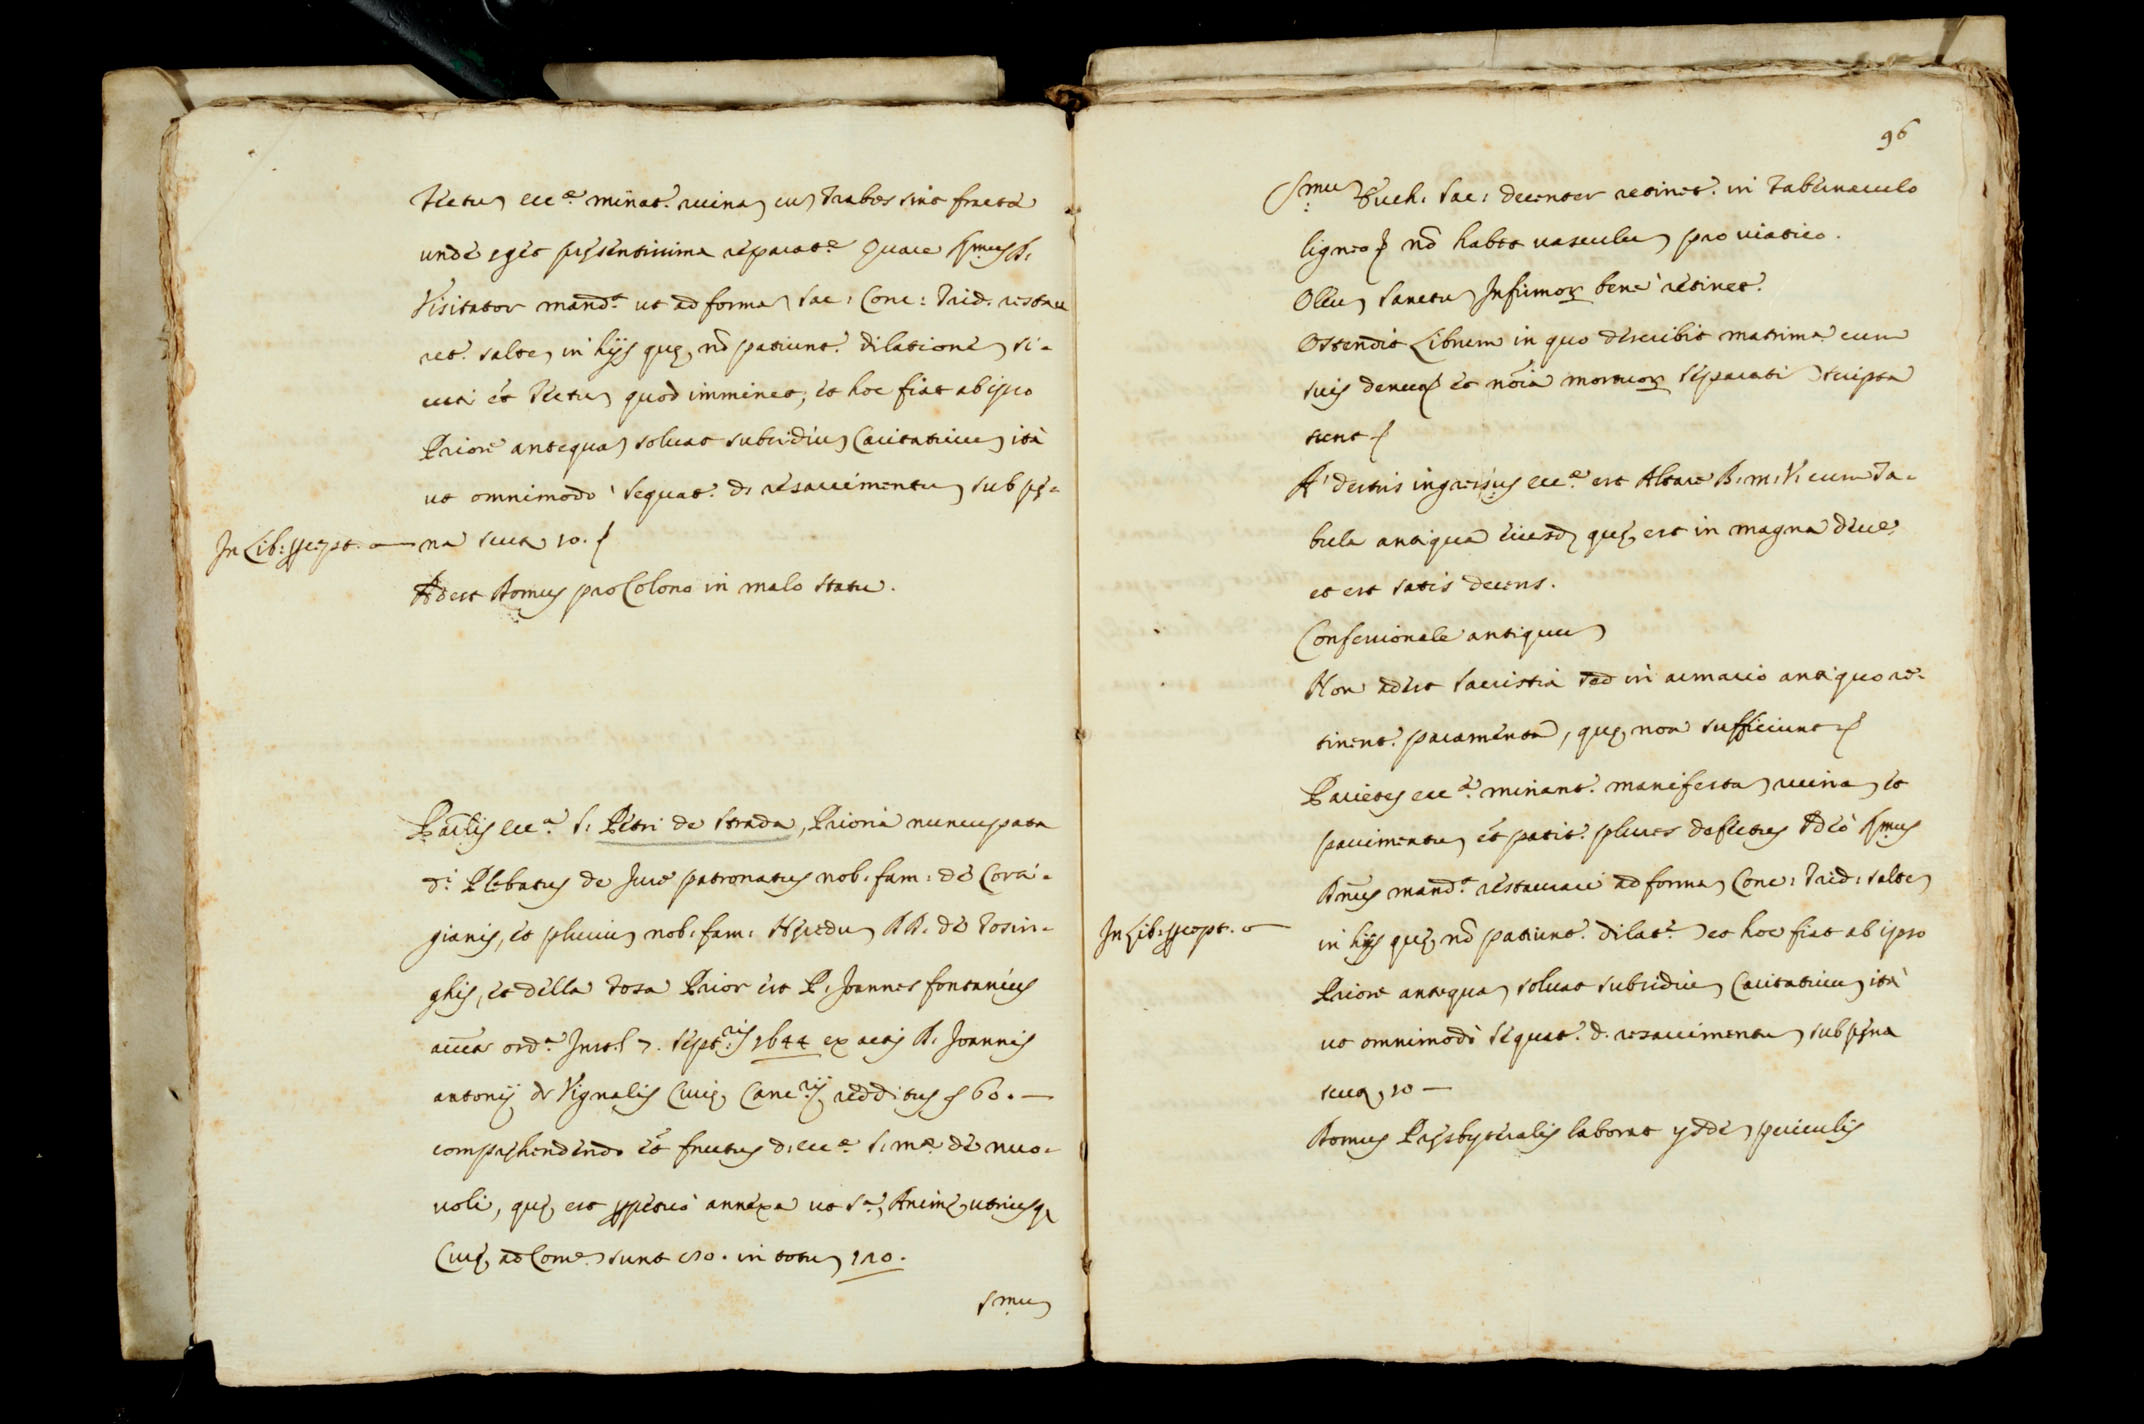 Tectu(m) ecc.ᵉ minat.ʳ ruina(m) cu(m) trabes sint fractæ
unde eget presentissima reparat.ᵉ Quare Rmus D.
Visitator mand.ᵗ ut ad forma(m) Sac: Conc: Trid. restau
ret.ʳ salte(m) in hijs que nō patiunt.ʳ dilatione(m) si-
cuti et Tectu(m) quod imminet; et hoc fiat ab ipso
Priore antequa(m) soluat subsidiu(m) Caritatiuu(m) ità
ut omnimodò sequat.ʳ d. resarcimentu(m) sub pę-
In Lib: precept. — na scut. 10.
Adest Domus pro Colono in malo statu.
Parālis ecc.ᵃ S. Petri de Strada, Prioria nuncupata
d.ⁱ Plebatus de Jure patronatus nob. fam: de Corri-
gianis, et pluriu(m) nob. fam: Heredu(m) DD. de Tosin-
ghis, et della Tosa Prior est P. Joannes fontanius
auct.ᵃ ord.ᵃ Instit. 7. Septris 1644 ex actis D. Joannis
antonij de Vignalis Curię Canc.rij redditus s 60. —
comprehendendo et fructus d. ecc.ᵉ S. M.ᵉ de nuo-
uoli, quę est perpetuò annexa ut s.ᵃ, Animę utriusq
Curę ad Com.ᵉ sunt in totu(m) 120.
Smu(m)
96
Smu(m) Euch. Sac: decenter retinet.ʳ in Tabernaculo
ligneo nō habet uasculu(m) pro uiatico.
Oleu(m) Sanctu(m) Infirmor. bene retinet.ʳ
Ostendit Librum in quo describit matrima cum
suis denunt. et noīa mortuor. separati(m) scripta
sunt
A' dextris ingressus ecc.ᵉ est Altare B. M. V. cum Ta-
bula antiqua eiusd. quę est in magna deuᵉ
et est satis decens.
Confessionale antiquu(m)
Non adest Sacristia sed in armario antiquo re-
tinent.ʳ paramenta, quę non sufficiunt
Parietes ecc.ᵉ minant.ʳ manifesta(m) ruina(m) et
pauimentu(m) et patit.ʳ plures defectus Ideò Rmus
Dnus mand.ᵗ restaurari ad forma(m) Conc: Trid: salte(m)
In Lib: precept. — in hijs quę nō patiunt.ʳ dilat.ᵉ et hoc fiat ab ipso
Priore antequa(m) soluat subsidiu(m) Caritatiuu(m) ità
ut omnimodò sequat.ʳ d. resarcimentu(m) sub pęna
scut. 10 —
Domus Presbyteralis laborat periculis